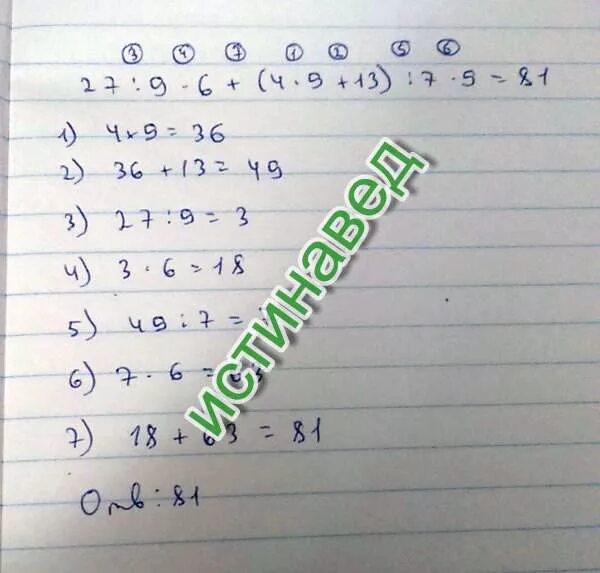 ③ ④ ⑦ ① ② ⑤ ⑥
27 : 9 · 6 + (4 · 9 + 13) : 7 · 9 = 81
1) 4 × 9 = 36
2) 36 + 13 = 49
3) 27 : 9 = 3
4) 3 · 6 = 18
5) 49 : 7 =
6) 7 · 6 = 63
7) 18 + 63 = 81
Отв: 81
истинавед